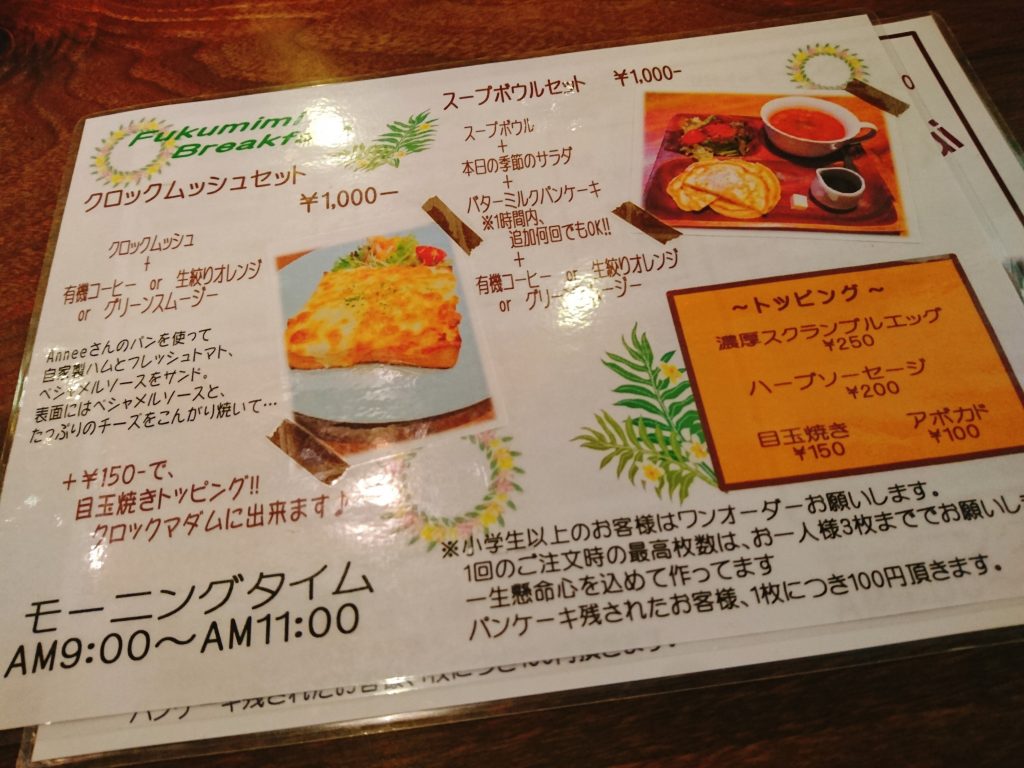 Fukumimi
Breakf
クロックムッシュセット
￥1,000−
クロックムッシュ
+
有機コーヒー or 生絞りオレンジ
or グリーンスムージー
Anneeさんのパンを使って
自家製ハムとフレッシュトマト、
ベシャメルソースをサンド。
表面にはベシャメルソースと、
たっぷりのチーズをこんがり焼いて…
+￥150−で、
目玉焼きトッピング!!
クロックマダムに出来ます♪
モーニングタイム
AM9:00～AM11:00
スープボウルセット ￥1,000−
スープボウル
+
本日の季節のサラダ
+
バターミルクパンケーキ
※1時間内、
追加何回でもOK!!
+
有機コーヒー or 生絞りオレンジ
or グリーンスムージー
～トッピング～
濃厚スクランブルエッグ
￥250
ハーブソーセージ
￥200
目玉焼き
￥150
アボカド
￥100
※小学生以上のお客様はワンオーダーお願いします。
1回のご注文時の最高枚数は、お一人様3枚まででお願いし
一生懸命心を込めて作ってます
パンケーキ残されたお客様、1枚につき100円頂きます。